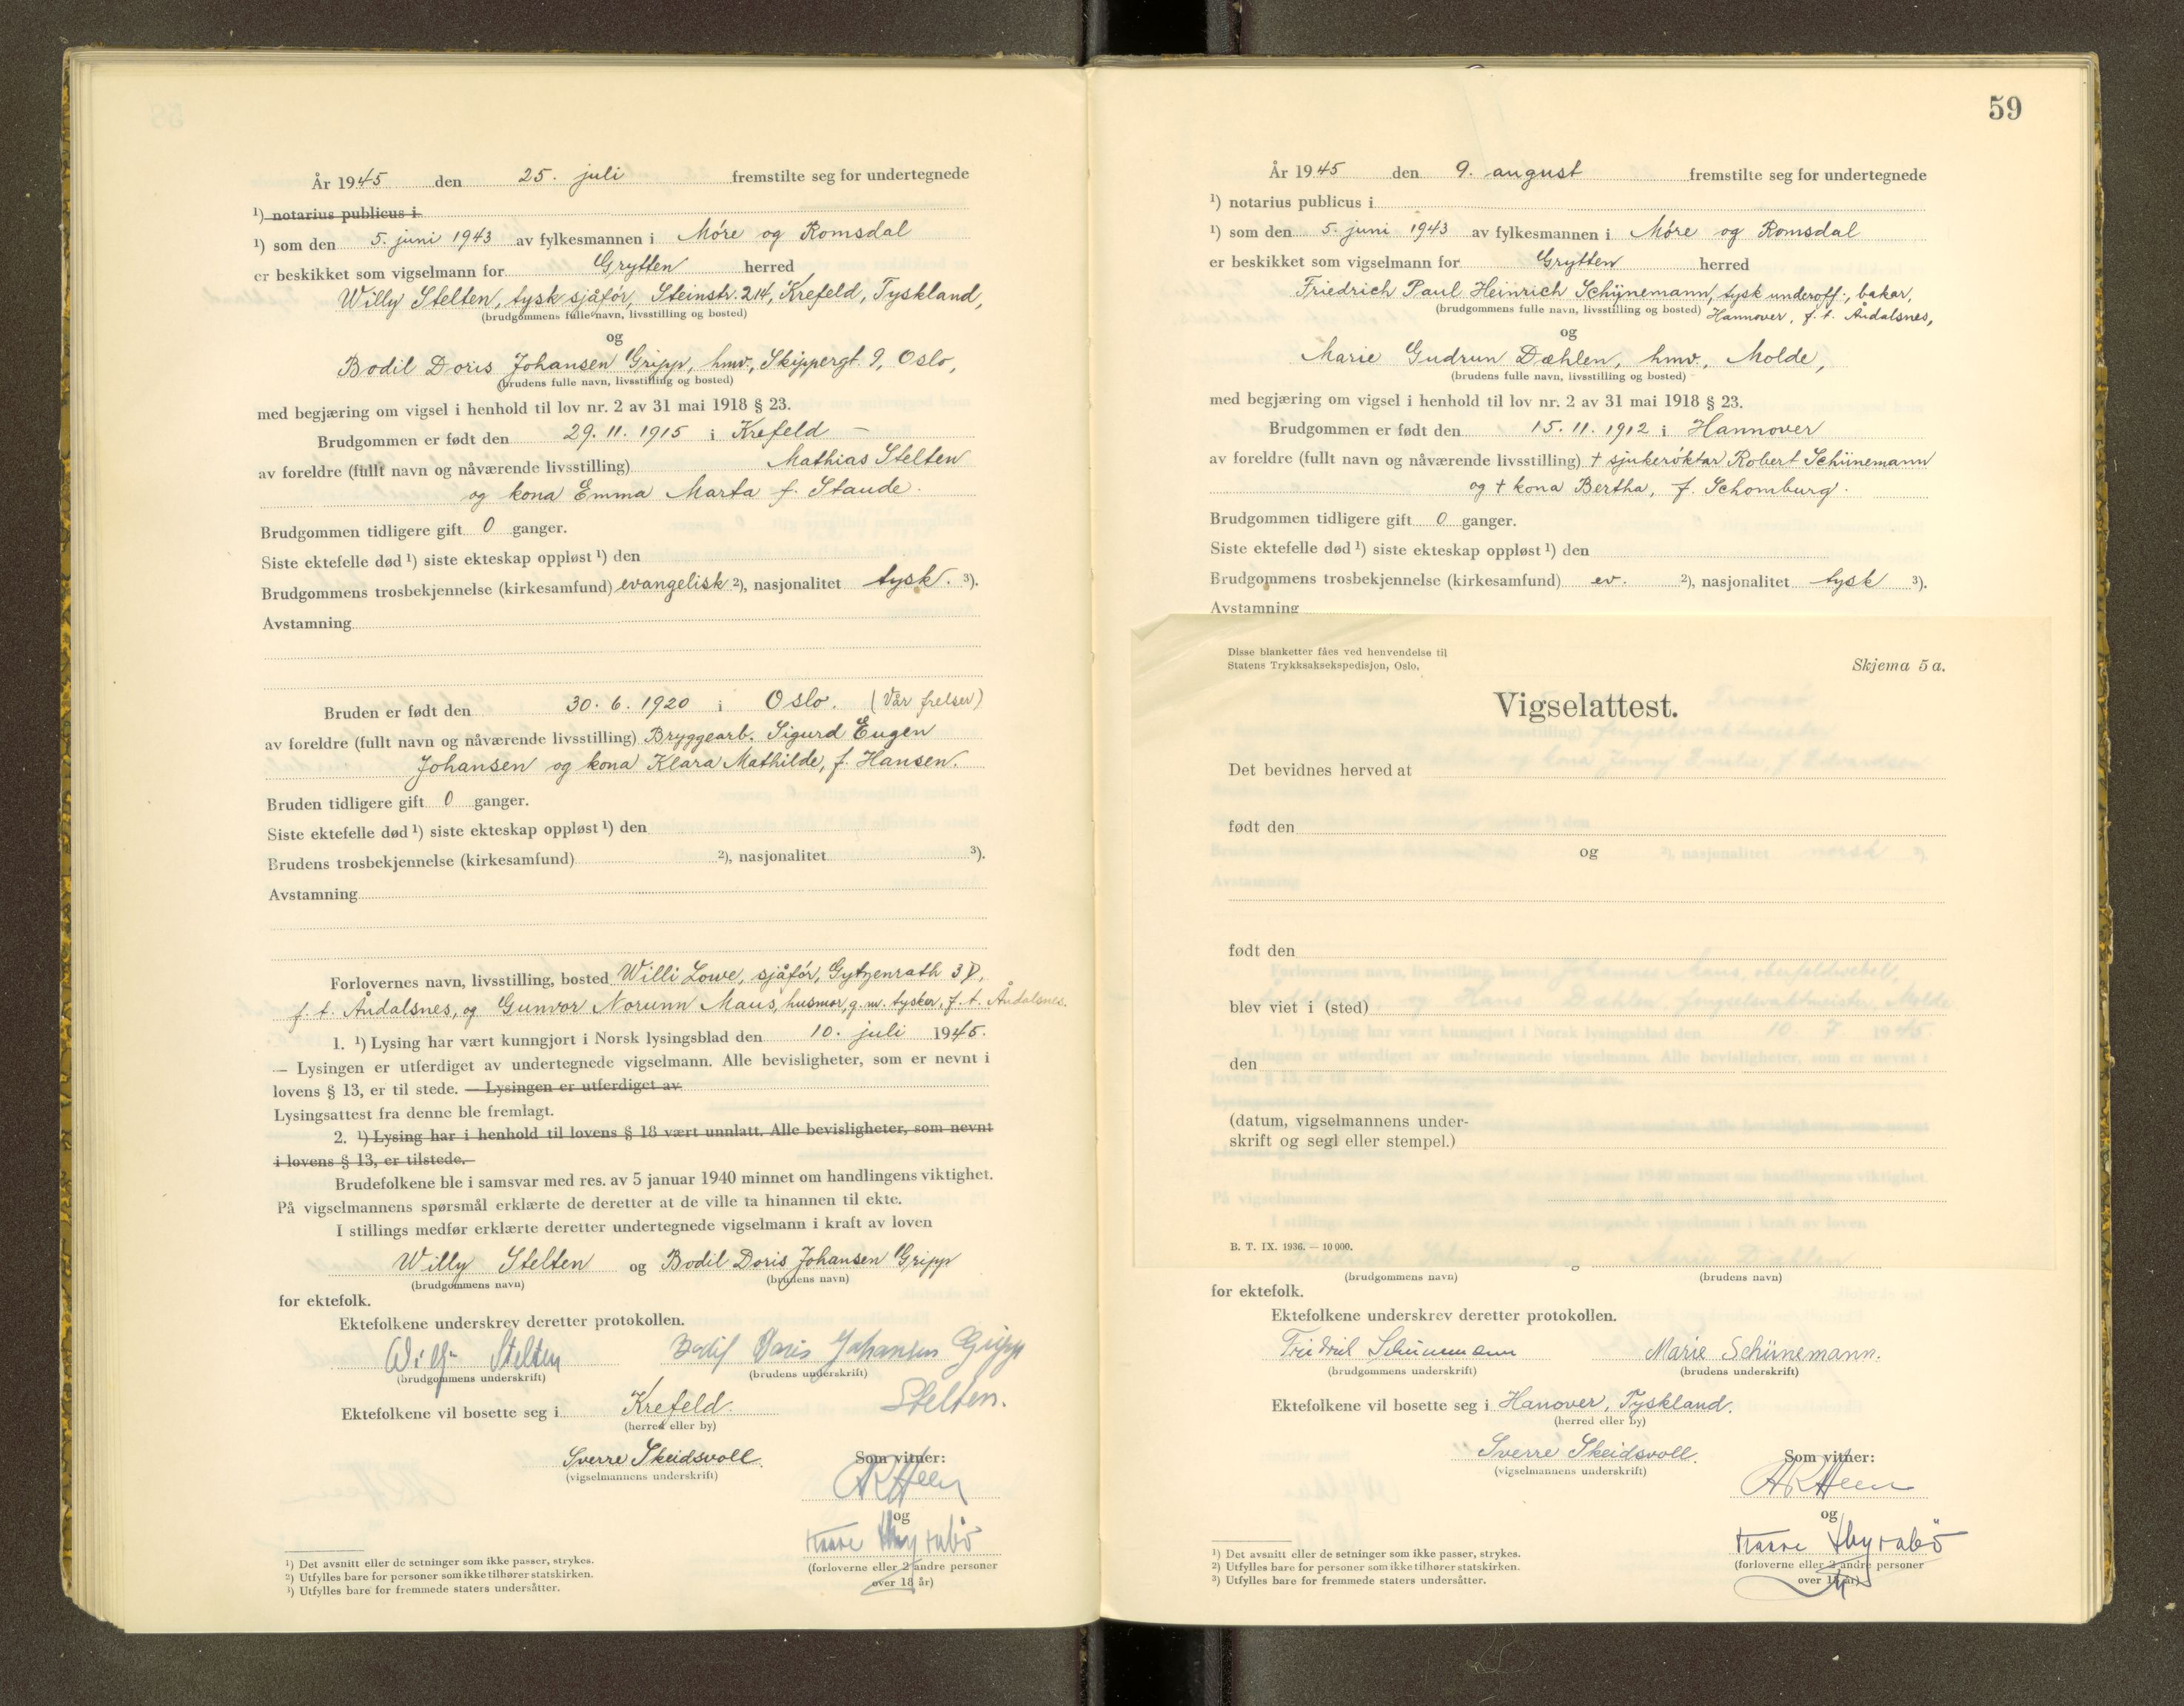 År 1945 den 25. juli fremstilte seg for undertegnede
¹) notarius publicus i
¹) som den 5. juni 1943 av fylkesmannen i Móre og Romsdal
er beskikket som vigselmann for Grytten herred
Willy Stelten, tysk sjåfór, Steinstr. 214, Krefeld, Tyskland,
(brudgommens fulle navn, livsstilling og bosted)
og
Bodil Doris Johansen Gripp, hmv., Skippergt. 9, Oslo,
(brudens fulle navn, livsstilling og bosted)
med begjæring om vigsel i henhold til lov nr. 2 av 31 mai 1918 § 23.
Brudgommen er født den 29. 11. 1915 i Krefeld –
av foreldre (fullt navn og nåværende livsstilling) Mathias Stelten
og kona Emma Marta f. Staude.
Brudgommen tidligere gift 0 ganger.
Siste ektefelle død ¹) siste ekteskap oppløst ¹) den
Brudgommens trosbekjennelse (kirkesamfund) evangelisk ²), nasjonalitet tysk. ³).
Avstamning
Bruden er født den 30. 6. 1920 i Oslo. (Vår frelser)
av foreldre (fullt navn og nåværende livsstilling) Bryggearb. Sigurd Eugen
Johansen og kona Klara Mathilde, f. Hansen.
Bruden tidligere gift 0 ganger.
Siste ektefelle død ¹) siste ekteskap oppløst ¹) den
Brudens trosbekjennelse (kirkesamfund) ²), nasjonalitet ³).
Avstamning
Forlovernes navn, livsstilling, bosted Willi Lowe, sjåfór, Gytzenrath 3
f. t. Åndalsnes, og Gunvor Norunn Maus, husmor, g. m. tysker, f. t. Åndalsnes.
1. ¹) Lysing har vært kunngjort i Norsk lysingsblad den 10. juli 1945.
— Lysingen er utferdiget av undertegnede vigselmann. Alle bevisligheter, som er nevnt i
lovens § 13, er til stede. — Lysingen er utferdiget av
Lysingsattest fra denne ble fremlagt.
2. ¹) Lysing har i henhold til lovens § 18 vært unnlatt. Alle bevisligheter, som nevnt
i lovens § 13, er tilstede.
Brudefolkene ble i samsvar med res. av 5 januar 1940 minnet om handlingens viktighet.
På vigselmannens spørsmål erklærte de deretter at de ville ta hinannen til ekte.
I stillings medfør erklærte deretter undertegnede vigselmann i kraft av loven
Willy Stelten og Bodil Doris Johansen Gripp
(brudgommens navn) (brudens navn)
for ektefolk.
Ektefolkene underskrev deretter protokollen.
Willy Stelten Bodil Doris Johansen Gripp
(brudgommens underskrift) (brudens underskrift)
Stelten.
Ektefolkene vil bosette seg i Krefeld.
(herred eller by)
Sverre Skeidsvoll.
(vigselmannens underskrift)
Som vitner:
AKHeen
og
Kaare Thyrabö
(forloverne eller 2 andre personer
over 18 år)
¹) Det avsnitt eller de setninger som ikke passer, strykes.
²) Utfylles bare for personer som ikke tilhører statskirken.
³) Utfylles bare for fremmede staters undersåtter.
59
År 1945 den 9. august fremstilte seg for undertegnede
¹) notarius publicus i
¹) som den 5. juni 1943 av fylkesmannen i Móre og Romsdal
er beskikket som vigselmann for Grytten herred
Friedrich Paul Heinrich Schünemann, tysk underoff., bakar,
(brudgommens fulle navn, livsstilling og bosted) Hannover, f. t. Åndalsnes,
og
Marie Gudrun Dæhlen, hmv., Molde,
(brudens fulle navn, livsstilling og bosted)
med begjæring om vigsel i henhold til lov nr. 2 av 31 mai 1918 § 23.
Brudgommen er født den 15. 11. 1912 i Hannover
av foreldre (fullt navn og nåværende livsstilling) † sjukeróktar Robert Schünemann
og † kona Bertha, f. Schomburg.
Brudgommen tidligere gift 0 ganger.
Siste ektefelle død ¹) siste ekteskap oppløst ¹) den
Brudgommens trosbekjennelse (kirkesamfund) ev. ²), nasjonalitet tysk ³).
Avstamning
Disse blanketter fåes ved henvendelse til
Statens Trykksaksekspedisjon, Oslo.
Skjema 5 a.
Vigselattest.
Det bevidnes herved at
født den
og
født den
blev viet i (sted)
den
(datum, vigselmannens under-
skrift og segl eller stempel.)
B. T. IX. 1936. — 10 000.
(brudgommens navn) (brudens navn)
for ektefolk.
Ektefolkene underskrev deretter protokollen.
Friedrich Schünemann Marie Schünemann.
(brudgommens underskrift) (brudens underskrift)
Ektefolkene vil bosette seg i Hanover, Tyskland.
(herred eller by)
Sverre Skeidsvoll.
(vigselmannens underskrift)
Som vitner:
AKHeen
og
Kaare Thyrabö
(forloverne eller 2 andre personer
over 18 år)
¹) Det avsnitt eller de setninger som ikke passer, strykes.
²) Utfylles bare for personer som ikke tilhører statskirken.
³) Utfylles bare for fremmede staters undersåtter.